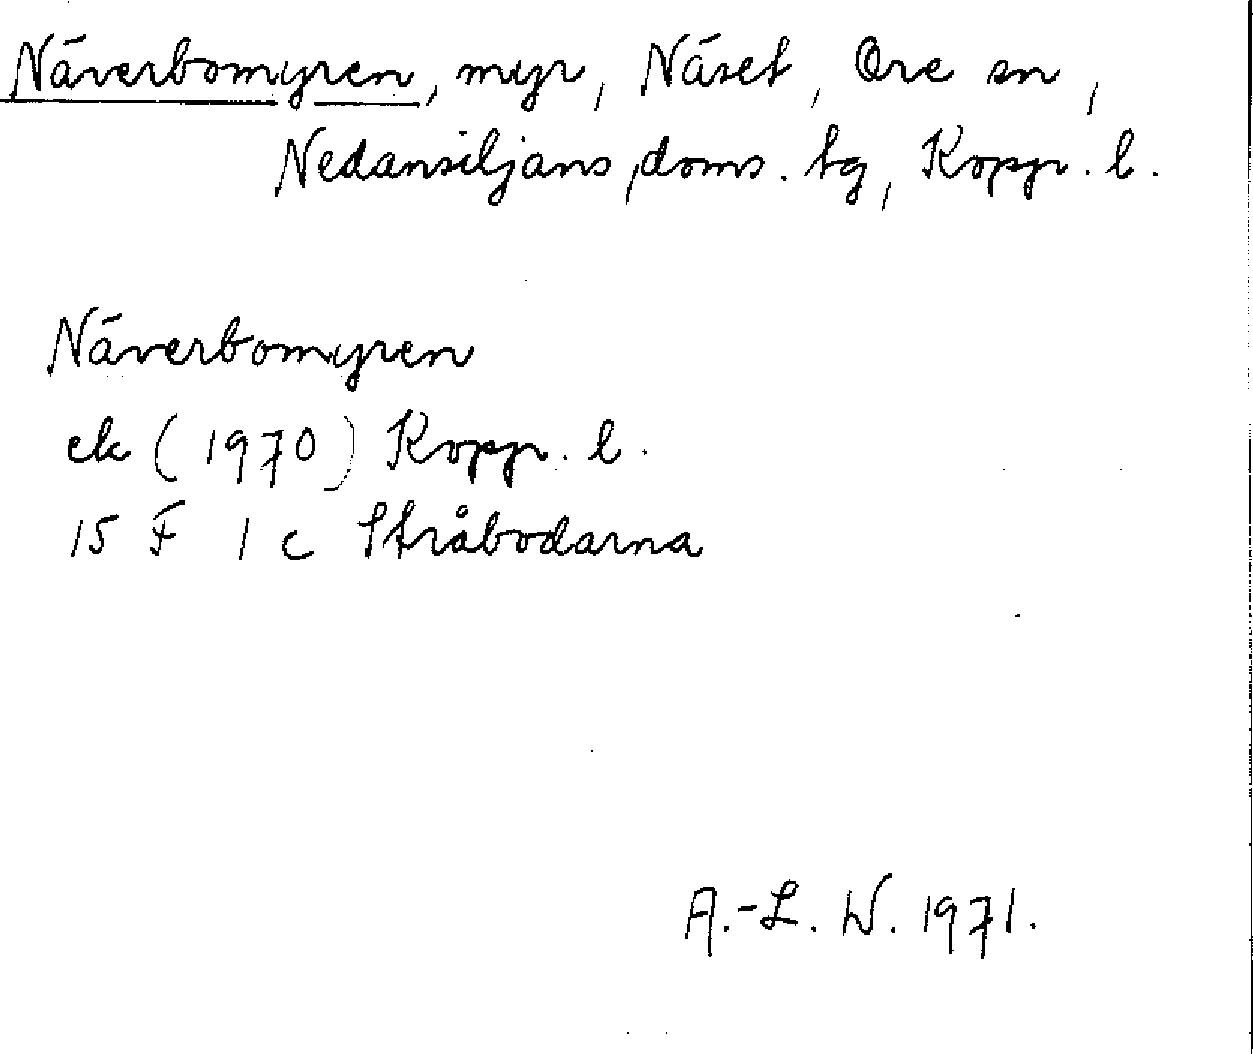 Näverbomyren, myr, Näset, Ore sn,
Nedansiljans doms. tg, Koppr. l.
Näverbomyren
ek (1970) Koppr. l.
15 F 1 c Stråbodarna
A.-L. W. 1971.